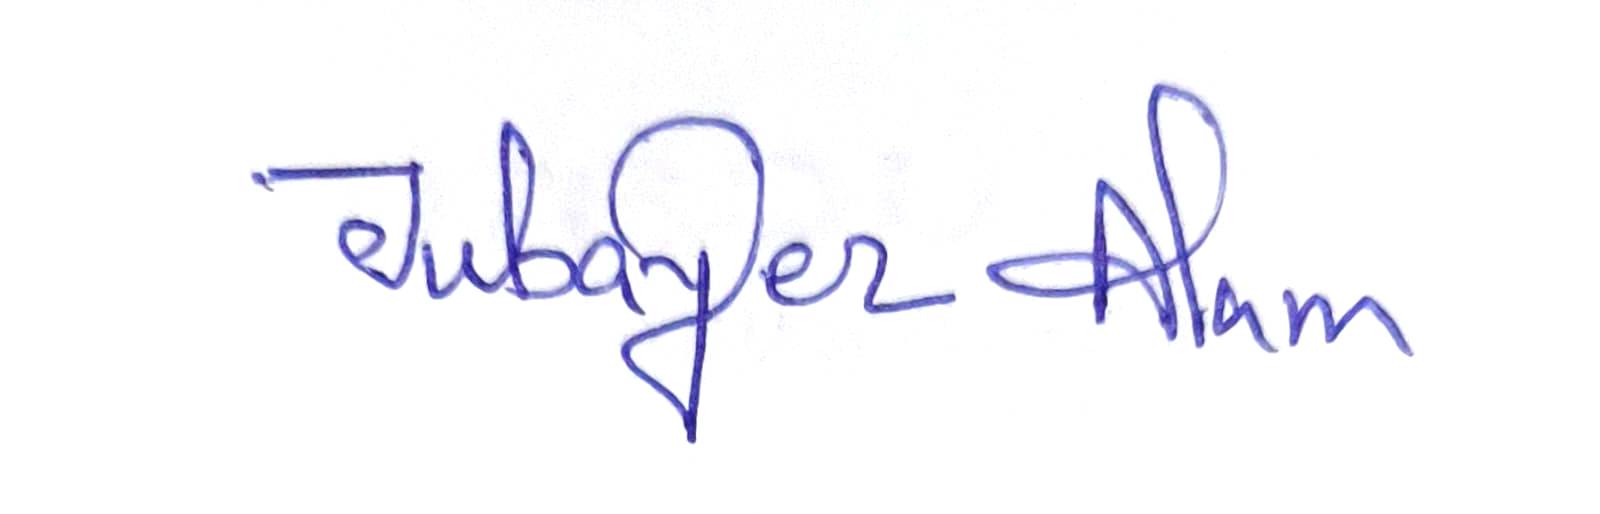 Jubayer Alam